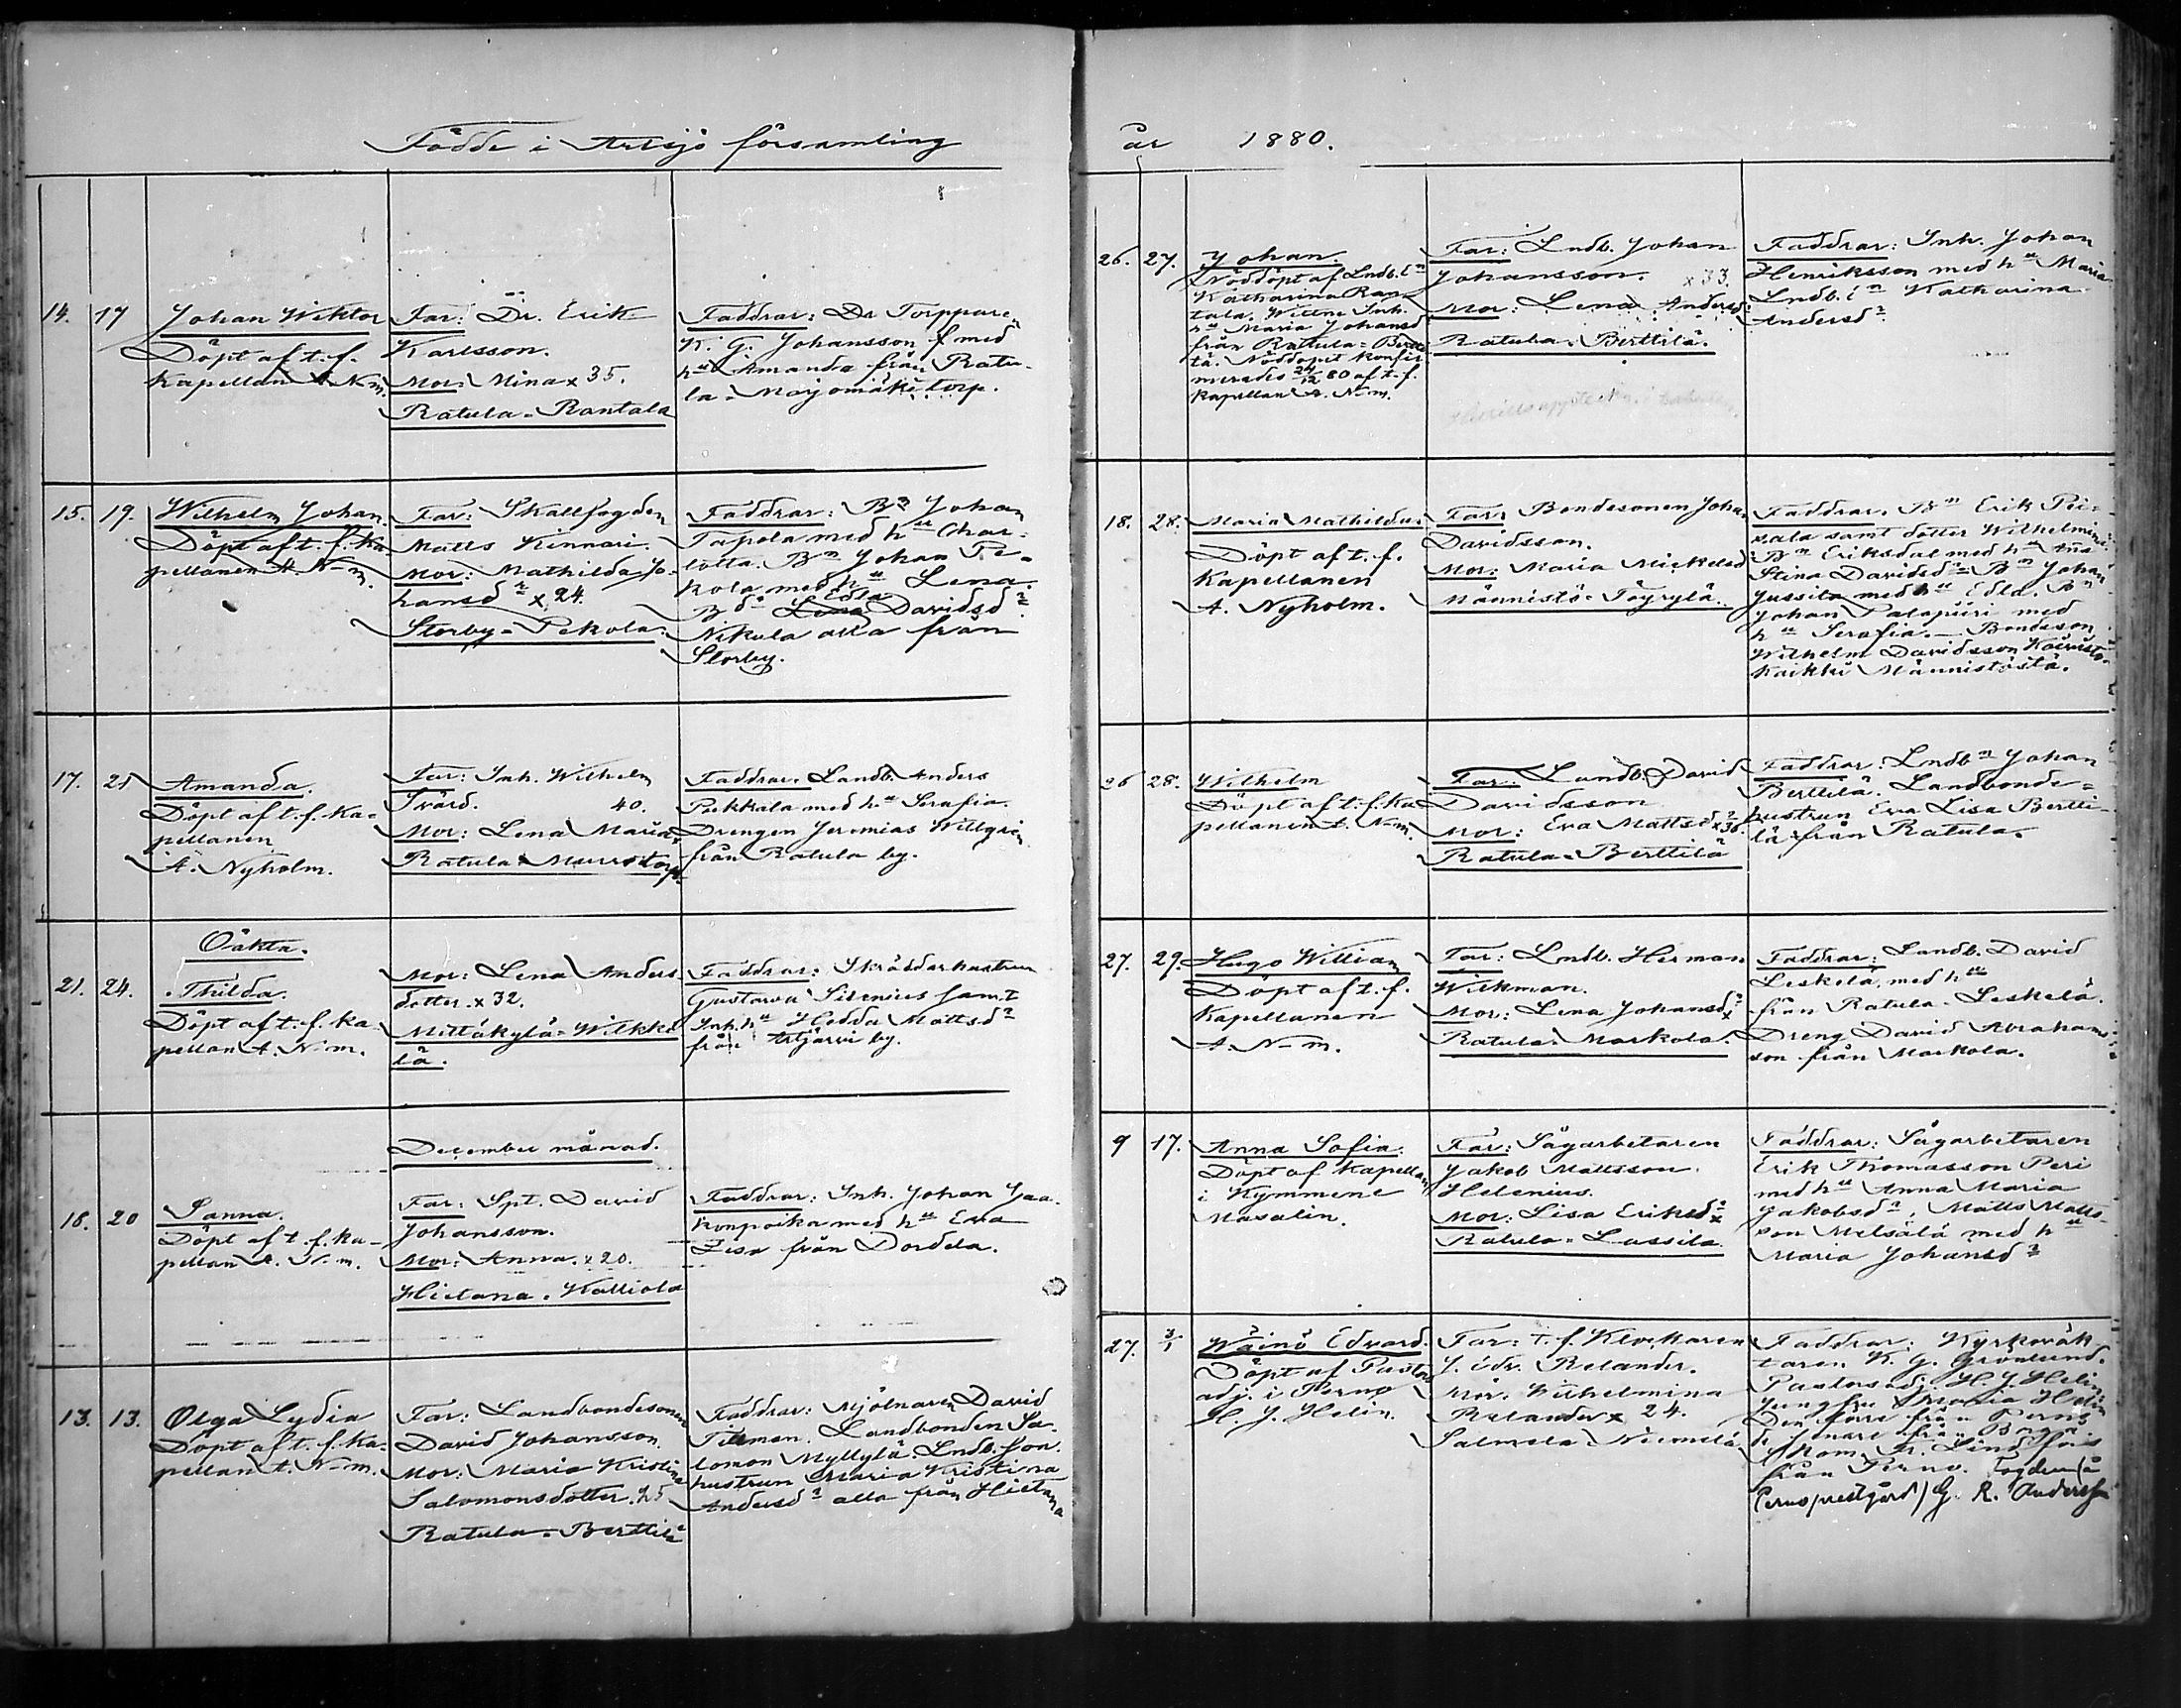 Födde i Artsjö församling
14. 17
Johan Wiktor
Döpt af t. f.
Kapellan A. N-m.
Far: Dr. Erik
Karlsson.
Mor: Mina x 35.
Ratula-Rantala
Faddrar: Da Torpparen
K. G. Johansson f med
hu Amanda från Ratu-
la-Marjomäki torp.
15. 19.
Wilhelm Johan.
Döpt af t. f. Ka-
pellanen A. N-m.
Far: Skallfogden
Matts Kinnari.
Mor: Mathilda Jo-
hansdr x 24.
Storby-Pekola.
Faddrar: Bn Johan
Tapola med hu Char-
lotta. Bn Johan Pe-
kola med hu Lena.
Bdr Edla Davidsdr
Nikula alla från
Storby.
17. 25
Amanda.
Döpt af t. f. Ka-
pellanen
A. Nyholm.
Far: Inh. Wilhelm
Svärd. 40.
Mor: Lena Maria.
Ratula Murrstorp.
Faddrar. Landb. Anders
Pekkala med hu Serafia.
Drengen Jeremias Willgrén
från Ratula by.
21. 24.
Oäkta.
Thilda.
Döpt af t. f. Ka-
pellan A. N-m.
Mor: Lena Anders-
dotter. x 32.
Mittäkylä-Wilkki
lä.
Faddrar: Skräddarhustrun
Gustava Sirenius samt
Inh. hu Hedda Mattsdr
från Artjärvi by.
December månad.
18. 20
Sanna.
Döpt af t. f. ka-
pellan A. N-m.
Far: Spt. David
Johansson.
Mor: Anna. x 20.
Hietana. Kalliola
Faddrar: Inh. Johan Jaa-
konpoika med hu Eva
Lisa från Dordela.
13. 13.
Olga Lydia
Döpt af t. f. Ka-
pellan A. N-m.
Far: Landbondesonen
David Johansson.
Mor: Maria Kristina
Salomonsdotter. 25
Ratula-Berttilä
Faddrar: Mjölnaren David
Tilman. Landbonden Sa-
lomon Myllylä. Lndb. son.
hustrun Maria Kristina
Andersdr alla från Hietana
år 1880.
26. 27.
Johan.
Nöddöpt af Lndb. En
Katharina Ran-
tala. Wittne Inh.
hu Maria Johansd
från Ratula-Bertti
lä. Nöddopet konfir-
merades 24/12 80 af t. f.
Kapellan A. N-m.
Far: Lndb. Johan
Johansson. x 33.
Mor: Lena Andersdr
Ratula. Berttilä.
Faddrar: Inh. Johan
Henriksson med hu Maria
Lndb. En Katharina
Andersdr
18. 28.
Maria Mathilda.
Döpt af t. f.
Kapellanen
A. Nyholm.
Far: Bondesonen Johan
Davidsson.
Mor: Maria Mickelsd
Männistö-Töyrylä.
Faddrar. Bn Erik Pei-
pala samt dotter Wilhelmina.
Bn Eriksdal med hu Ana
Stina Davidsdr Bn Johan
Jussila med hu Edla. Bn
Johan Palapuri med
hu Serafia.- Bondeson
Wilhelm Davidsson Koivisto.
Kaikki Männistöstä.
26 28.
Wilhelm
Döpt af t. f. Ka-
pellanen A. N-m.
Far: Landb. David
Davidsson
Mor: Eva Mattsdr x 36.
Ratula-Berttilä
Faddrar: Lndbn Johan
Berttilä. Landbonde-
hustrun Eva Lisa Bertti-
lä från Ratula.
27. 29.
Hugo William
Döpt af t. f.
Kapellanen
A. N-m.
Far: Lndb. Herman
Wikman.
Mor: Lena Johansdr x
Ratula. Markola.
Faddrar: Landb. David
Leskelä med hu
från Ratula-Leskelä.
Dreng David Abrahams-
son från Markola.
9 17.
Anna Sofia.
Döpt af Kapellan
i Kymmene
Masalin.
Far: Sågarbetaren
Jakob Mattsson
Helenius.
Mor: Lisa Eriksdr x
Ratula-Lassila
Faddrar: Sågarbetaren
Erik Thomasson Peri
med hu Anna Maria
Jakobsdr, Matts Matts-
son Melsälä med hu
Maria Johansdr
27. 3/1
Wäinö Edvard.
Döpt af Pastors
adj. i Perno
H. J. Helin.
Far: t. f. Klockaren
J. Edv. Relander.
Mor: Wilhelmina
Relander x 24.
Salmela Niemelä
Faddrar: Kyrkovak-
taren K. G. Grönlund.
Pastors adj. H. J. Helin
Jungfru Maria Helin
Den förre från Perno
d. senare från Borgå
från Perno. Fogden (å
Perno prestgård) G. R. Andersson